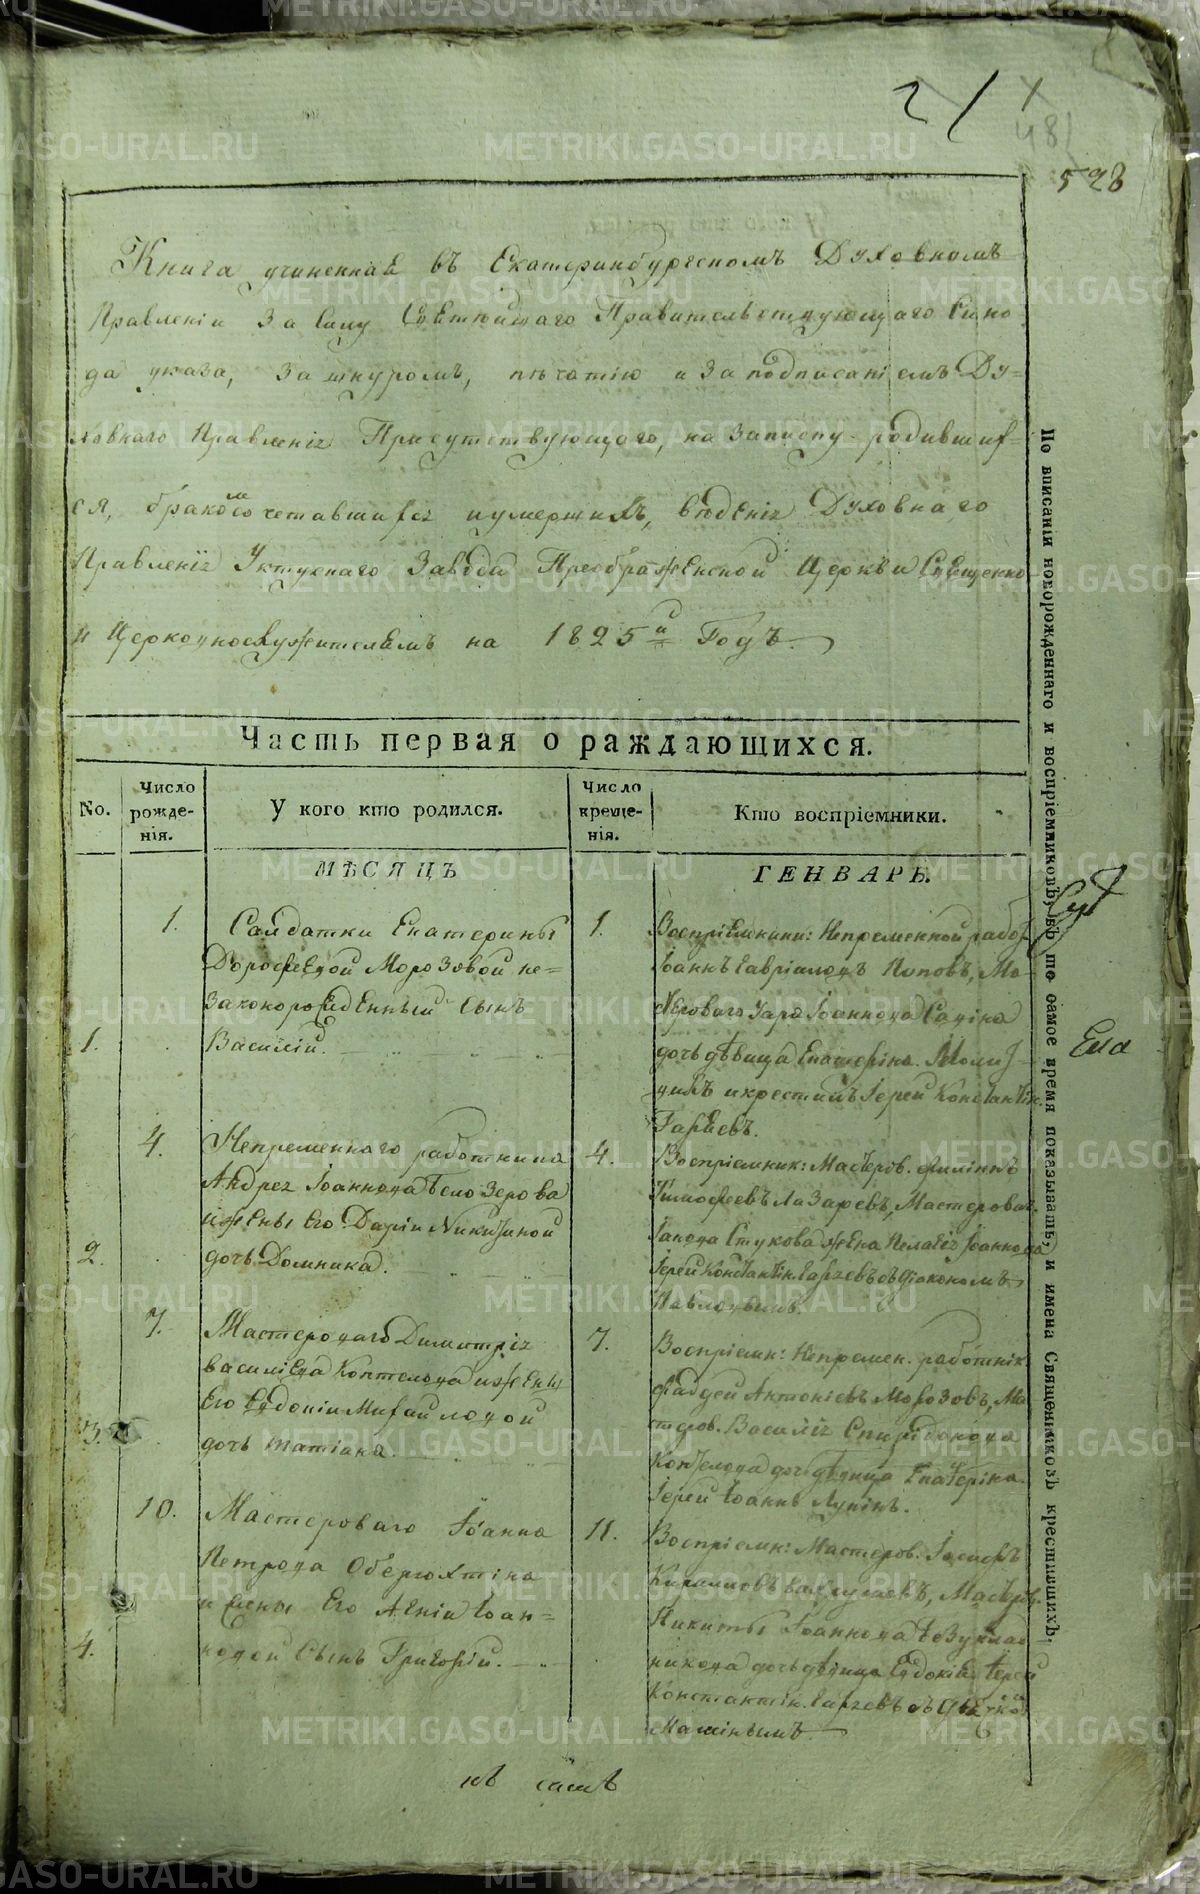 21
481
528
Книга учиненная въ Екатеринбургскомъ Духовномъ
Правленіи За Силу Святѣйшаго Правительствующаго Сино
да указа, За шнуромъ, печатію и За подписаніемъ Ду=
ховнаго Правленія Присутствующаго, на Записку родивших=
ся, бракосочетавшихся и умершихъ, вѣденія Духовнаго
Правленія Уктускаго Завода Преображенской Церкви Священно
и Церковнослужителемъ на 1825й Годъ.
Часть первая о раждающихся.
No.
Число рожденія.
У кого кто родился.
Число крещенія.
Кто воспріемники.
МѢСЯЦЪ
ГЕНВАРЬ.
1.
1.
Салдатки Екатерины
Дорофеевой Морозовой не=
законорожденный сынъ
Василій.
1.
Воспріемники: Непременной работ.
Іоаннъ Гавріиловъ Поповъ, Ма-
дочь дѣвица Екатерина. Молит
вилъ и крестилъ Іерей Константін.
2.
4.
Непременнаго работника
Андрея Іоаннова Белозерова
и жены Его Даріи Никитиной
дочь Домника.
4.
Воспріемник: Мастеров. Филіппъ
Тимофеевъ Лазаревъ, Мастероваг.
Іакова Стукова жена Пелагія Іоаннова
Іерей Константін. съ діакономъ
Павловымъ.
3.
7.
Мастероваго Димитрія
Василіева Коптелова и жены
Его Евдокіи Михайловой
дочь Татіана.
7.
Воспріемн: Непремен. работник
Фаддей Антоніевъ Морозовъ, Ма
стеров. Василія Спиридонова
Коптелова дочь дѣвица Екатеріна.
Іерей Іоаннъ Лукинъ.
4.
10.
Мастероваго Іоанна
Петрова Оберюхтина
и жены Его Іоан=
новой Сынъ Григорій.
11.
Воспріемн: Мастеров. Іосифъ
Никиты Іоаннова
дочь дѣвица Евдокія Іерей
Константін.
По вписаніи новорожденнаго и воспріемниковъ, въ то самое время показывать, и имена Священниковъ крестившихъ.